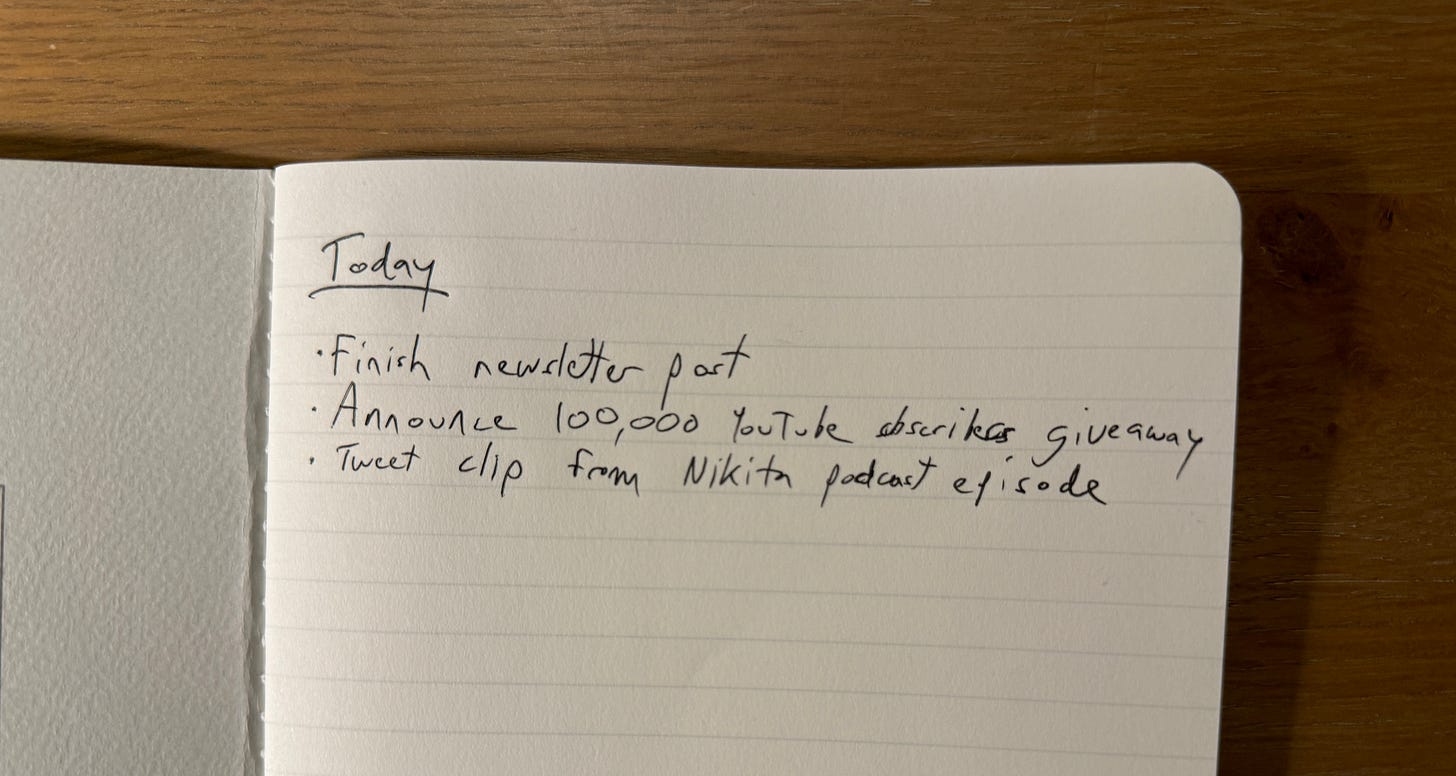 Today
·Finish newsletter post
·Announce 100,000 YouTube subscribers giveaway
·Tweet clip from Nikita podcast episode